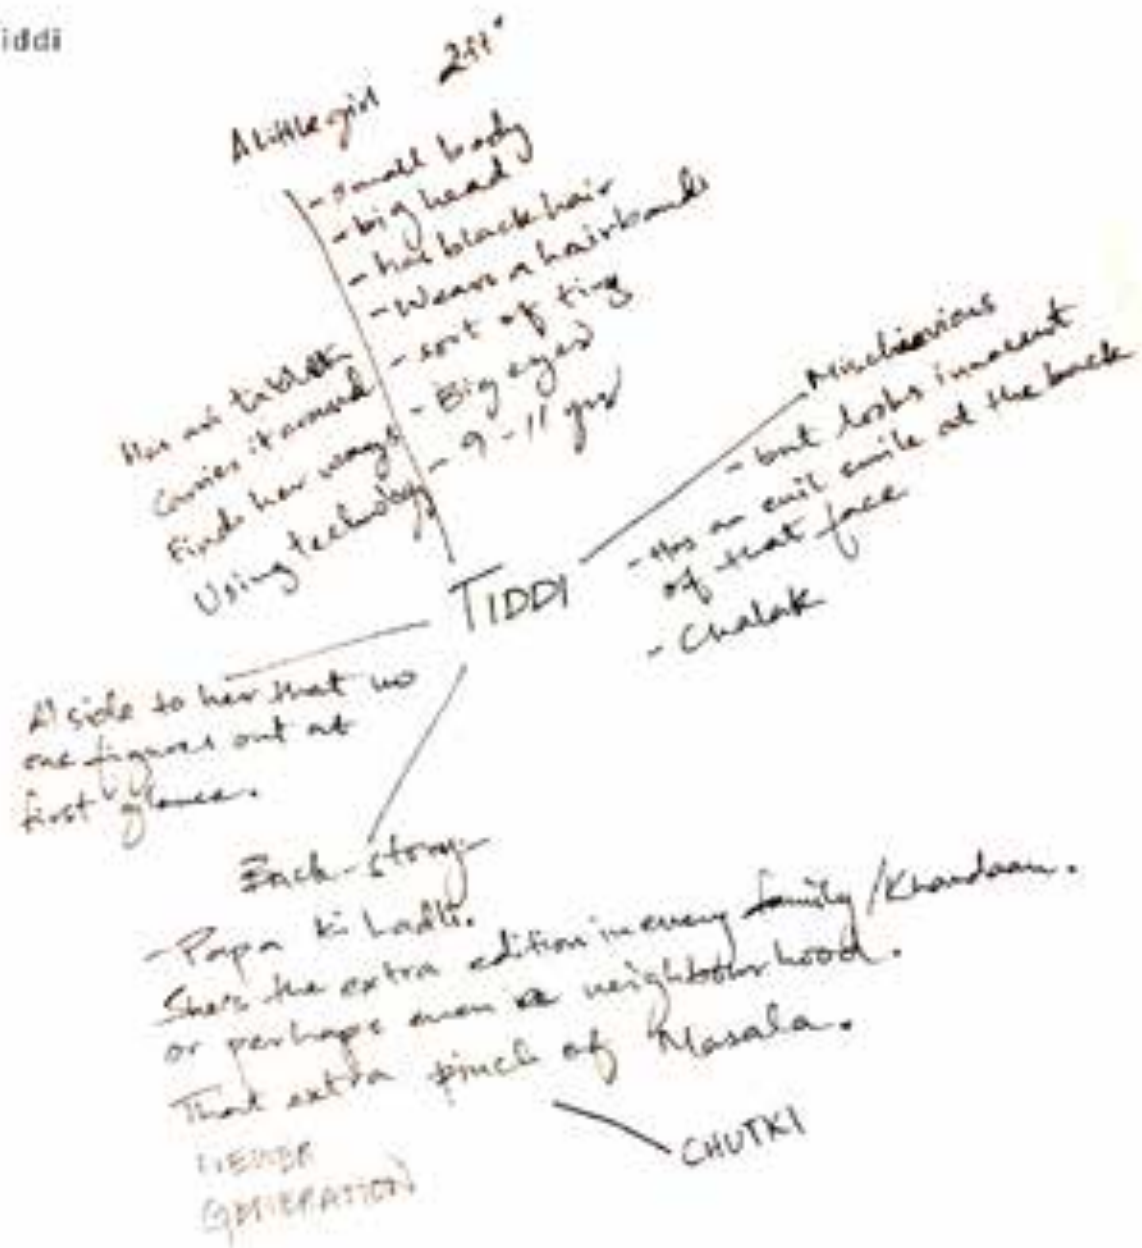 iddi
A little girl 2ft'
- small body
- big head
- has black hair
- Wears a hairband
- sort of tiny
- Big eyes
- 9-11 yrs
Has a tablet
Carries it around
Finds her ways
Using technology
Mischievious
- but looks innocent
- Has an evil smile at the back
of that face
- Chalak
TIDDI
A side to her that no
one figures out at
first glance.
Back-story-
- Papa ki ladli.
She's the extra edition in every family/Khandaan.
or perhaps even neighbourhood.
That extra pinch of Masala.
CHUTKI
NEWER
GENERATION